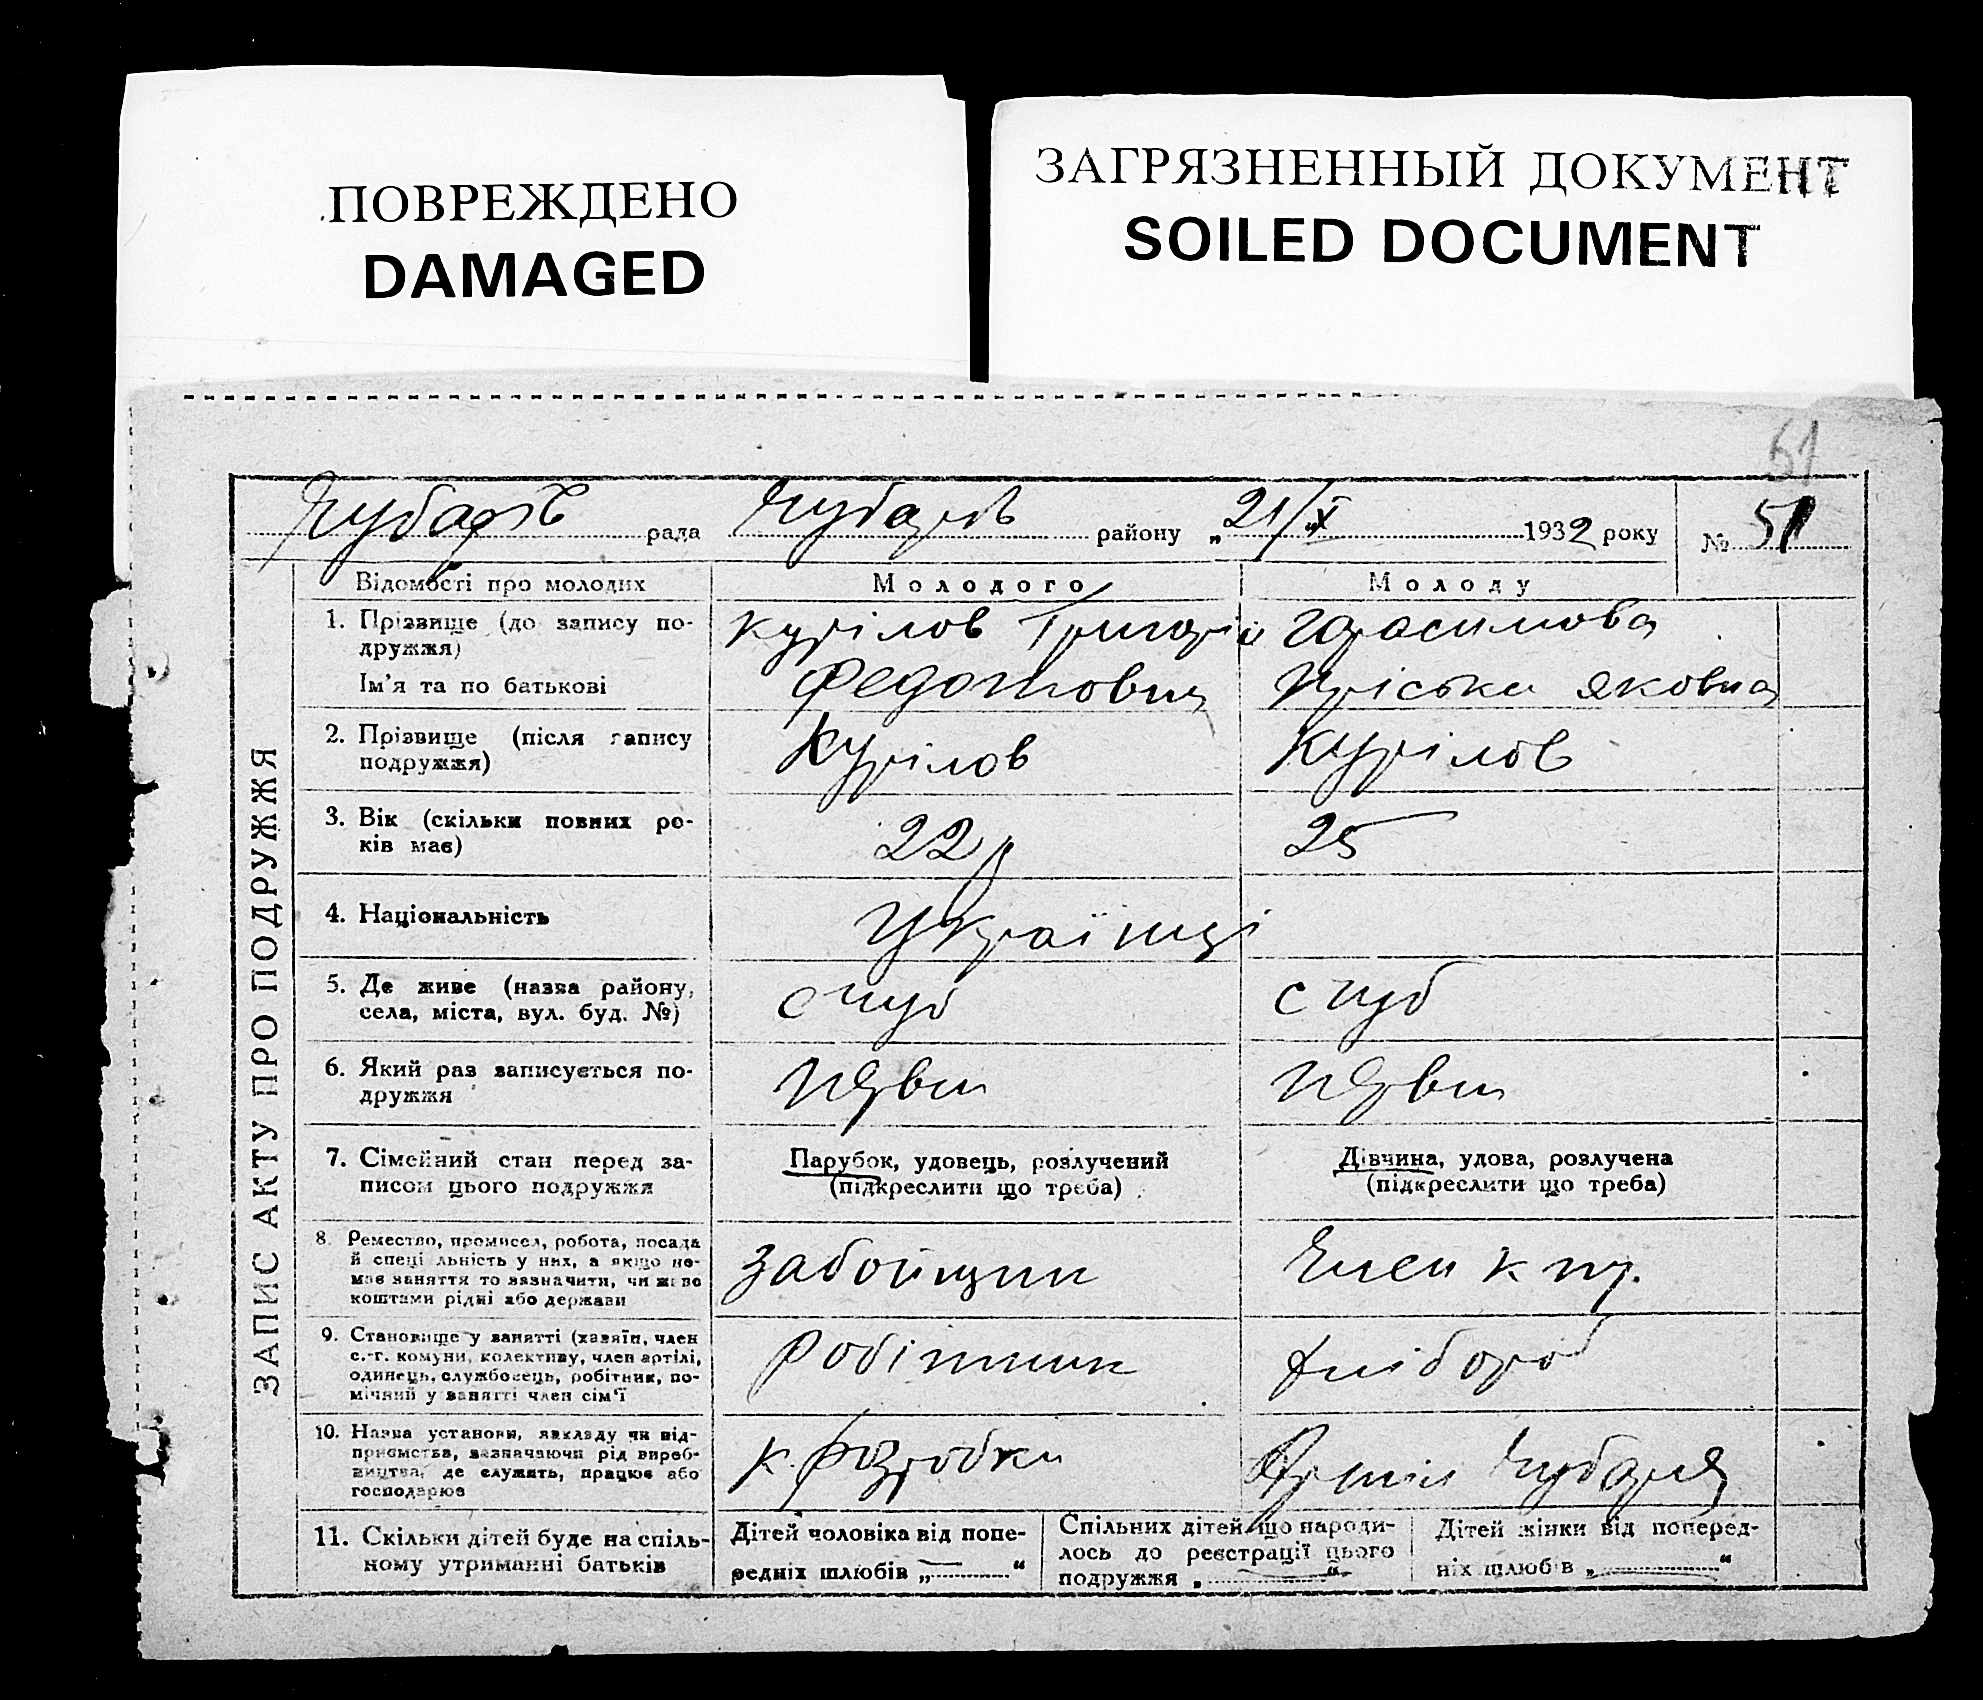 ПОВРЕЖДЕНО
DAMAGED
ЗАГРЯЗНЕННЫЙ ДОКУМЕНТ
SOILED DOCUMENT
51
Чубарів рада Чубарів району „21/XI 1932 року № 51
ЗАПИС АКТУ ПРО ПОДРУЖЖЯ
Відомості про молодих Молодого Молоду
1. Прізвище (до запису по-
дружжя)
Ім'я та по батькові
Курілов Григорій
Федотович
Гарасимова
Пріська Яковна
2. Прізвище (після запису
подружжя)
Курілов
Курілов
3. Вік (скільки повних ро-
ків має)
22р
25
4. Національність
Українці
5. Де живе (назва району,
села, міста, вул. буд. №)
с Чуб
с Чуб
6. Який раз записується по-
дружжя
Перви
Перви
7. Сімейний стан перед за-
писом цього подружжя
Парубок, удовець, розлучений
(підкреслити що треба)
Дівчина, удова, розлучена
(підкреслити що треба)
8. Ремество, промисел, робота, посада
й спеціальність у них, а якщо не-
має заняття то зазначити, чи живе
коштами рідні або держави
Забойщик
Член к гр.
9. Становище у занятті (хазяїн, член
с.-г. комуни, колективу, член артілі,
одинець, службовець, робітник, по-
мічний у занятті член сім'ї
Робітник
хлібороб
10. Назва установи, закладу чи під-
приємства, зазначаючи рід вироб-
ництва, де служить, працює або
господарює
К. розробки
Артіль Чубаря
11. Скільки дітей буде на спіль-
ному утриманні батьків
Дітей чоловіка від попе-
редніх шлюбів „—“
Спільних дітей, що народи-
лось до реєстрації цього
подружжя „—“
Дітей жінки від поперед-
ніх шлюбів „—“